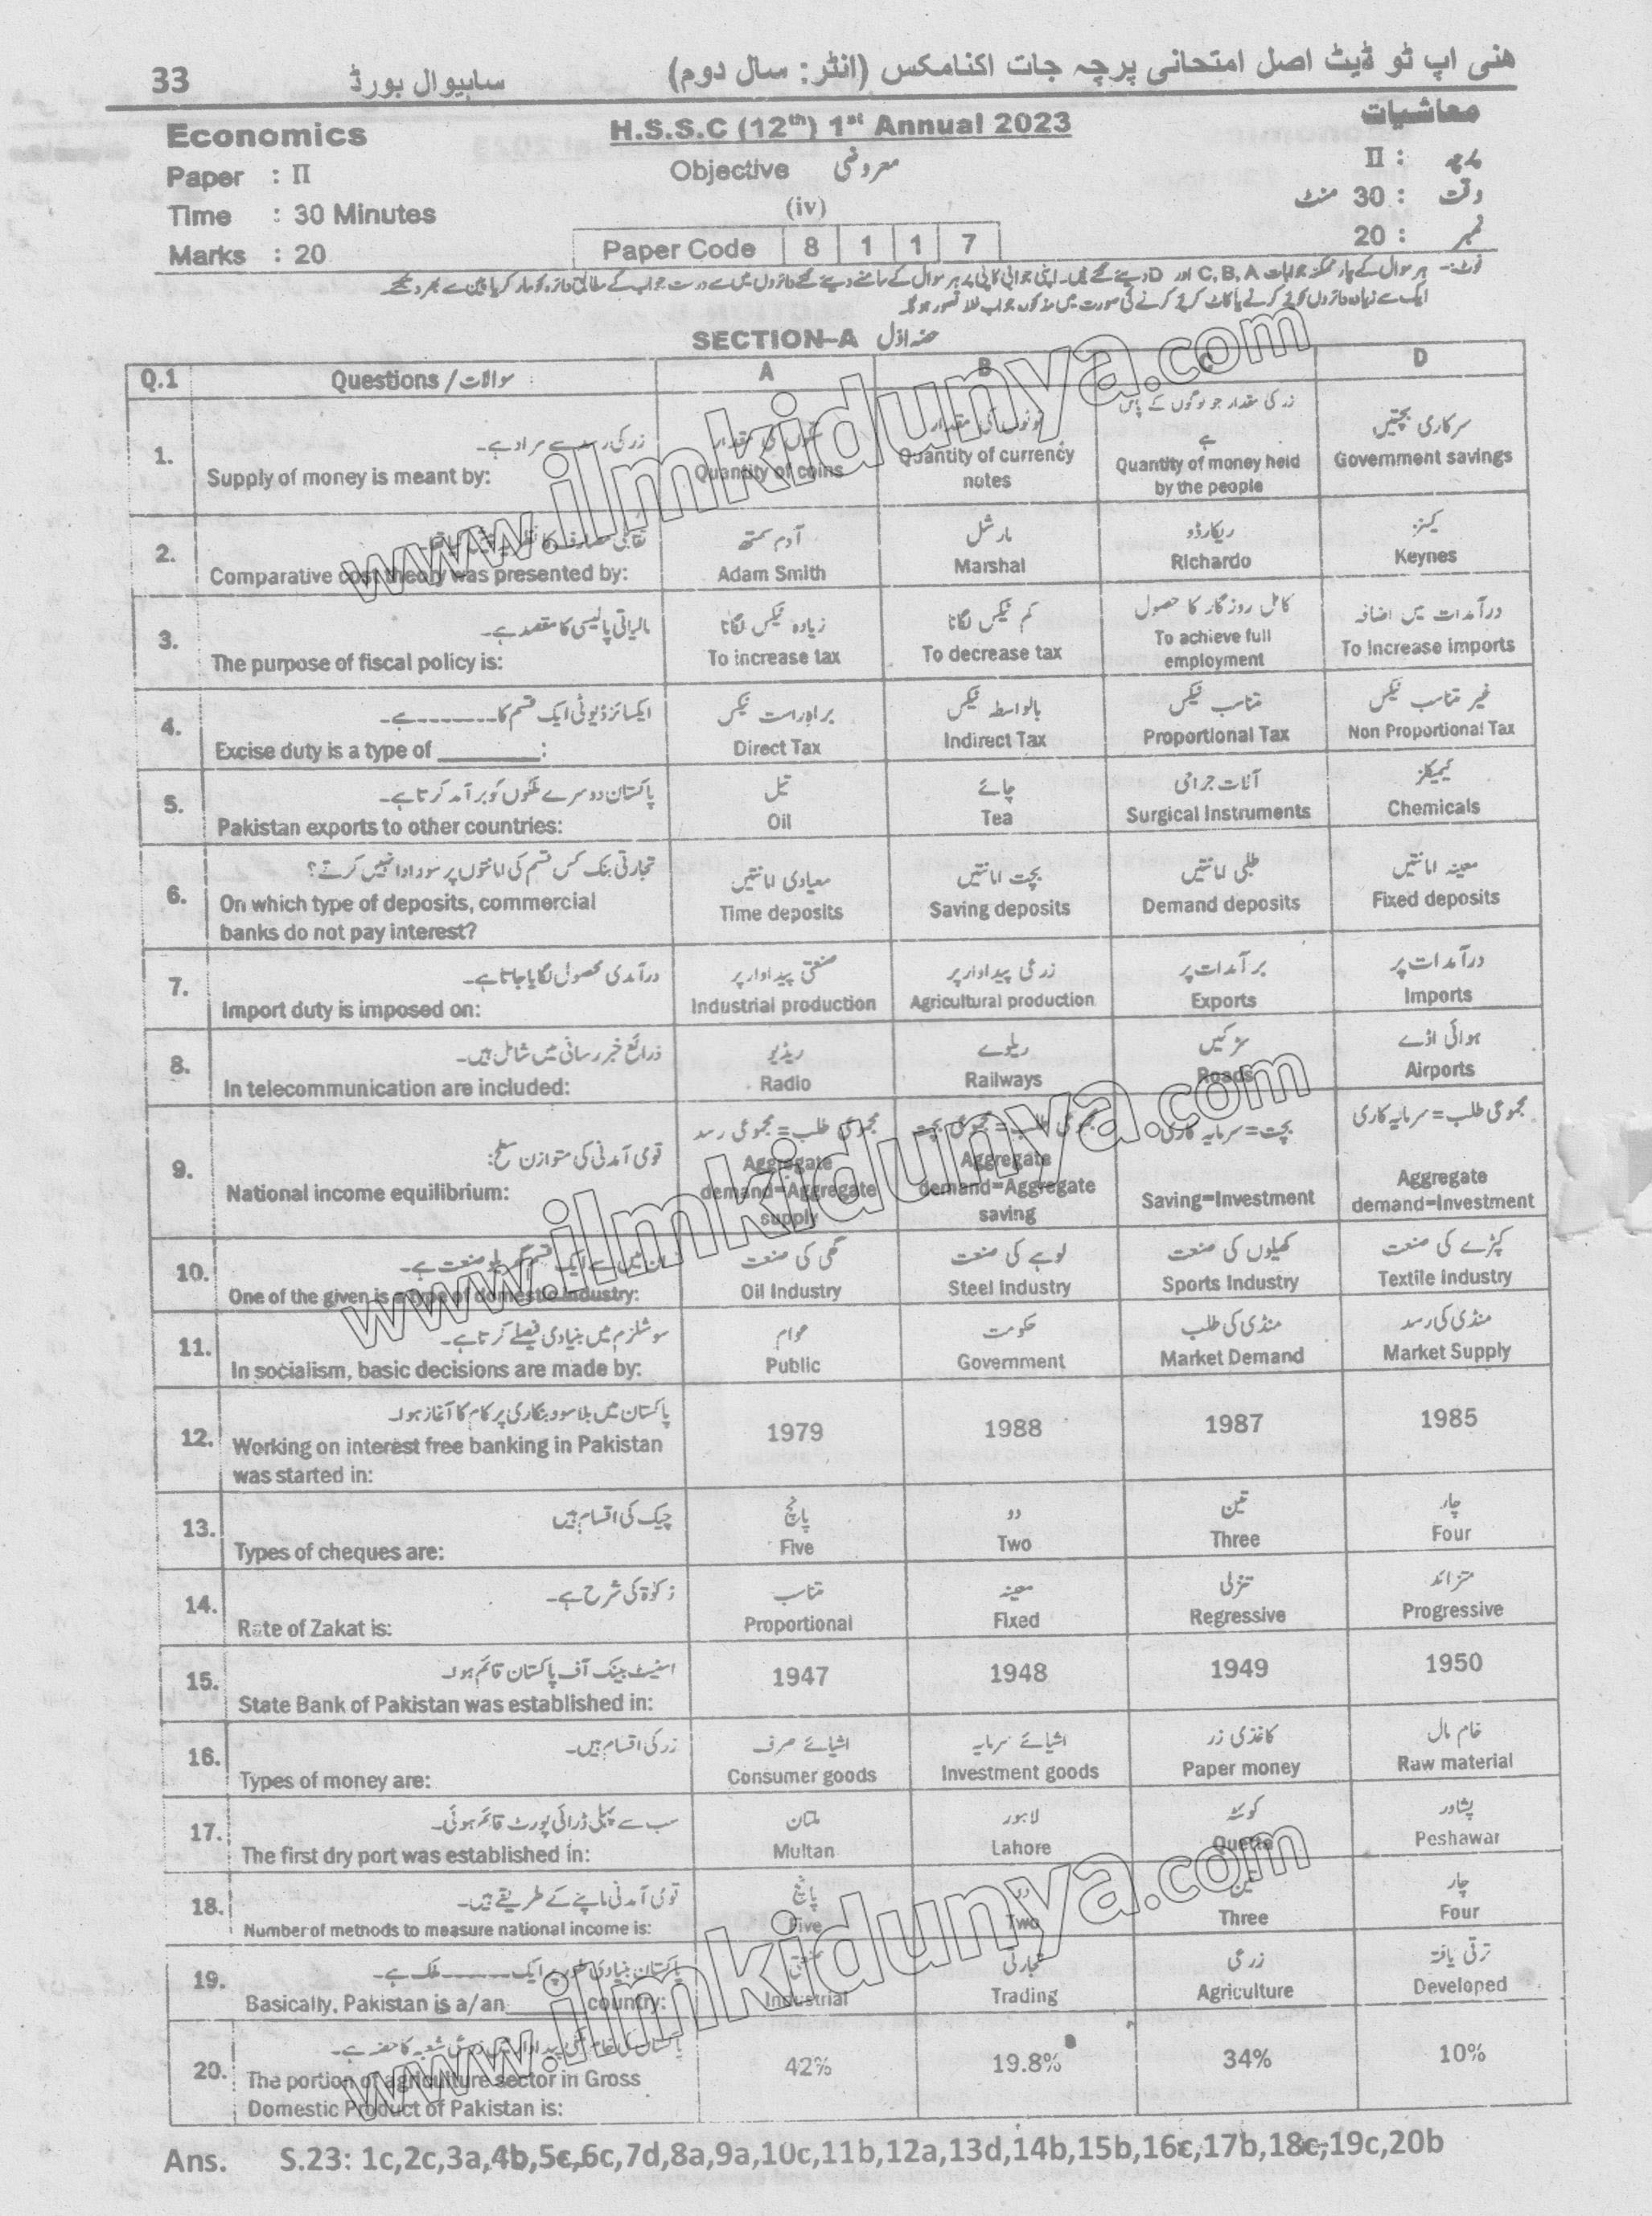 ھنی اپ ٹو ڈیٹ اصل امتحانی پرچہ جات اکنامکس (انٹر: سال دوم) ساہیوال بورڈ 33
Economics H.S.S.C (12th) 1st Annual 2023 معاشیات
Paper : II Objective معروضی پرچہ : II
Time : 30 Minutes (iv) وقت : 30 منٹ
Marks : 20 Paper Code 8 1 1 7 نمبر : 20
SECTION-A حصہ اوّل
Q.1 Questions / سوالات A B C D
1. زر کی رسد سے مراد ہے۔
Supply of money is meant by:
Quantity of coins
Quantity of currency notes
زر کی مقدار جو لوگوں کے پاس ہے
Quantity of money held by the people
سرکاری بچتیں
Government savings
2. Comparative cost theory was presented by:
آدم سمتھ
Adam Smith
مارشل
Marshal
ریکارڈو
Richardo
کینز
Keynes
3. مالیاتی پالیسی کا مقصد ہے۔
The purpose of fiscal policy is:
زیادہ ٹیکس لگانا
To increase tax
کم ٹیکس لگانا
To decrease tax
کامل روزگار کا حصول
To achieve full employment
درآمدات میں اضافہ
To Increase imports
4. ایکسائز ڈیوٹی ایک قسم کا--------ہے۔
Excise duty is a type of ________:
براہ راست ٹیکس
Direct Tax
بالواسطہ ٹیکس
Indirect Tax
متناسب ٹیکس
Proportional Tax
غیر متناسب ٹیکس
Non Proportional Tax
5. پاکستان دوسرے ملکوں کو برآمد کرتا ہے۔
Pakistan exports to other countries:
تیل
Oil
چائے
Tea
آلات جراحی
Surgical Instruments
کیمیکلز
Chemicals
6. تجارتی بنک کس قسم کی امانتوں پر سود ادا نہیں کرتے؟
On which type of deposits, commercial banks do not pay interest?
میعادی امانتیں
Time deposits
بچت امانتیں
Saving deposits
طلبی امانتیں
Demand deposits
معینہ امانتیں
Fixed deposits
7. درآمدی محصول لگایا جاتا ہے۔
Import duty is imposed on:
صنعتی پیداوار پر
Industrial production
زرعی پیداوار پر
Agricultural production
برآمدات پر
Exports
درآمدات پر
Imports
8. ذرائع خبر رسانی میں شامل ہیں۔
In telecommunication are included:
ریڈیو
Radio
ریلوے
Railways
سڑکیں
Roads
ہوائی اڈے
Airports
9. قومی آمدنی کی متوازن سطح:
National income equilibrium:
مجموعی طلب=مجموعی رسد
Aggregate demand=Aggregate supply
مجموعی طلب=مجموعی بچت
Aggregate demand=Aggregate saving
بچت=سرمایہ کاری
Saving=Investment
مجموعی طلب=سرمایہ کاری
Aggregate demand=Investment
10. One of the given is a type of domestic industry:
گھی کی صنعت
Oil Industry
لوہے کی صنعت
Steel Industry
کھیلوں کی صنعت
Sports Industry
کپڑے کی صنعت
Textile Industry
11. سوشلزم میں بنیادی فیصلے کرتا ہے۔
In socialism, basic decisions are made by:
عوام
Public
حکومت
Government
منڈی کی طلب
Market Demand
منڈی کی رسد
Market Supply
12. پاکستان میں بلا سود بنکاری پر کام کا آغاز ہوا۔
Working on interest free banking in Pakistan was started in:
1979
1988
1987
1985
13. چیک کی اقسام ہیں
Types of cheques are:
پانچ
Five
دو
Two
تین
Three
چار
Four
14. زکوٰۃ کی شرح ہے۔
Rate of Zakat is:
متناسب
Proportional
معینہ
Fixed
تنزلی
Regressive
متزائد
Progressive
15. اسٹیٹ بینک آف پاکستان قائم ہوا۔
State Bank of Pakistan was established in:
1947
1948
1949
1950
16. زر کی اقسام ہیں۔
Types of money are:
اشیائے صرف
Consumer goods
اشیائے سرمایہ
Investment goods
کاغذی زر
Paper money
خام مال
Raw material
17. سب سے پہلی ڈرائی پورٹ قائم ہوئی۔
The first dry port was established in:
ملتان
Multan
لاہور
Lahore
کوئٹہ
Quetta
پشاور
Peshawar
18. قومی آمدنی ماپنے کے طریقے ہیں۔
Number of methods to measure national income is:
پانچ
Five
دو
Two
تین
Three
چار
Four
19. Basically, Pakistan is a/an ______ country:
Industrial
تجارتی
Trading
زرعی
Agriculture
ترقی یافتہ
Developed
20. The portion of agriculture sector in Gross Domestic Product of Pakistan is:
42%
19.8%
34%
10%
Ans. S.23: 1c,2c,3a,4b,5c,6c,7d,8a,9a,10c,11b,12a,13d,14b,15b,16c,17b,18c,19c,20b
www.ilmkidunya.com
www.ilmkidunya.com
www.ilmkidunya.com